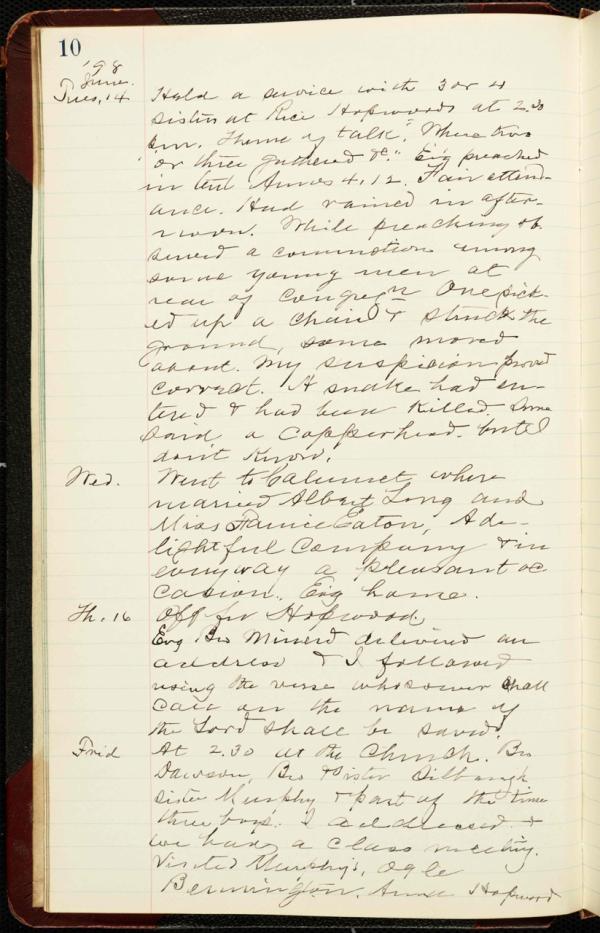 10
'98
June.
Tues, 14 Held a service with 3 or 4
sisters at Rice Hopwoods at 2.30
p.m. Theme of talk, "Where two
or three gathered &c." Ev'g preached
in tent Amos 4,12. Fair attend-
ance. Had rained in after-
noon. While preaching ob-
served a commotion among
some young men at
rear of congreg'n One pick-
ed up a chair & struck the
ground, some moved
about. My suspicion proved
correct. A snake had en-
tered & had been killed. Some
said a Copperhead. but I
don't know.
Wed. Went to Calumet where
married Albert Long and
Miss Eaton, A de-
lightful company & in
everyway a pleasant oc
casion. Ev'g home.
Th. 16 Off for Hopwood.
Evg Bro Minerd delivered an
address & I followed
using the verse whosoever shall
call on the name of
the Lord shall be saved.
Frid At 2.30 at the Church. Bro
Dawson, Bro & Sister
Sister Murphy & part of the time
three boys. I addressed &
we had a class meeting.
Visited Murphy's, Ogle
Bennington, Hopwood